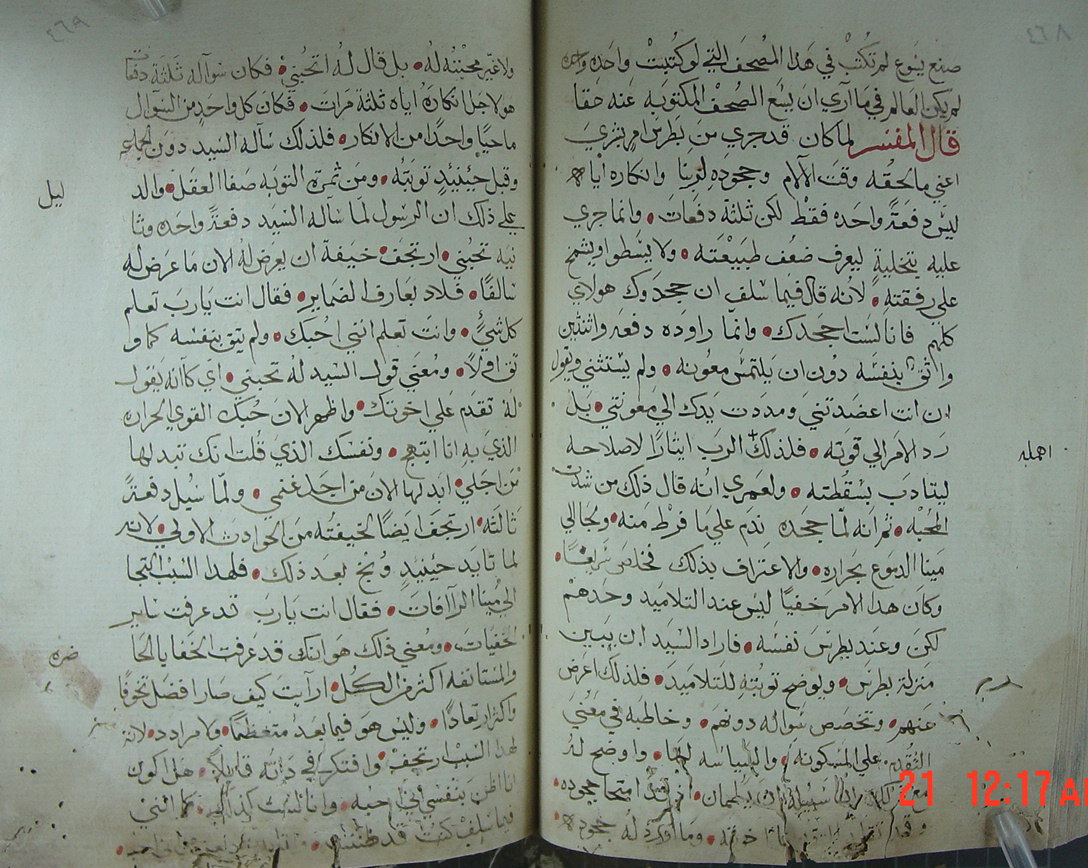 ٤٦٨
صنع يسوع لم تكتب في هذا المصحف التي لو كتبت واحده واحده
لم يكن العالم فيما اري ان يسع الصحف المكتوبه عنه حقا
قال المفسر لما كان قد جري من بطرس امر بشري
اعني ما لحقه وقت الآلام وجحوده لربنا وانكاره اياه
ليس دفعة واحده فقط لكن ثلثة دفعات • وانما جري
عليه بتخلية ليعرف ضعف طبيعته • ولا يسطوا ويشمخ
علي رفقته • لانه قال فيما سلف ان جحدوك هولاي
كلهم فانا لست اجحدك • وانما راوده دفعه واثنتين
واثق بنفسه دون ان يلتمس معونه • ولم يستثني ويقول
ان انت اعضدتني ومددت يدك الي معونتي • بل
رد الامر الي قوته • فلذلك الرب ايثارا لاصلاحه
اهمله
ليتادب بسقطته • ولعمري انه قال ذلك من شدت
المحبه • ثم انه لما جحده ندم علي ما فرط منه • ولجا الي
مينا الدموع بحراره • والاعتراف بذلك فخلص سريعا •
وكان هذا الامر خفيا ليس عند التلاميد وحدهم
لكن وعند بطرس نفسه • فاراد السيد ان يبين
منزلة بطرس • ويوضح توبته للتلاميد • فلذلك اعرض
عنهم • وتخصص سواله دونهم • وخاطبه في معني
التقدم علي المسكونه • واوضح له
امتحا جحوده •
٤٦٩
ولا غير محبته له • بل قال له اتحبني • فكان سواله ثلثة دفعات
هو لاجل انكاره اياه ثلثة مرات • فكان كل واحد من السوال
ماحيا واحدا من الانكار • فلذلك ساله السيد دون الجماعه
وقبل حينيد توبته • ومن ثمرة التوبه صفا العقل • والد
ليل
علي ذلك ان الرسول لما ساله السيد دفعة واحده وثا
نيه تحبني • ارتجف خيفة ان يعرض له الان ما عرض له
سالفا • فلاد بعارف الضماير • فقال انت يارب تعلم
كل شيء • وانت تعلم انني احبك • ولم يثق بنفسه كما و
ثق اولا • ومعني قول السيد له تحبني • اي كانه يقول
له تقدم علي اخوتك • واظهر الان حبك القوي الحراره
الذي به انا ابتهج • ونفسك الذي قلت انك تبدلها
من اجلي • ابدلها الان من اجل غنمي • ولما سيل دفعة
ثالثه • ارتجف ايضا لخيفته من الحوادث الاولي • لانه
لما تايد حينيد وبخ بعد ذلك • فلهدا السبب التجا
الي مينا الرافات • فقال انت يارب قد عرفت ساير
الخفيات • ومعني ذلك هو انك قد عرفت الخفايا الحا
ضره
والمستانفه اكثر من الكل • ارايت كيف صار افضل تخوفا
واكثر ارتعادا • وليس هو فيما بعد متعظما • ولا مرادد • لانه
لهدا السبب ارتجف • وافتكر في ذاته قايلا • هل اكون
انا اظن بنفسي اني احبه • وانا لست كذلك • كما انني
فيما سلف كنت قد ظننت